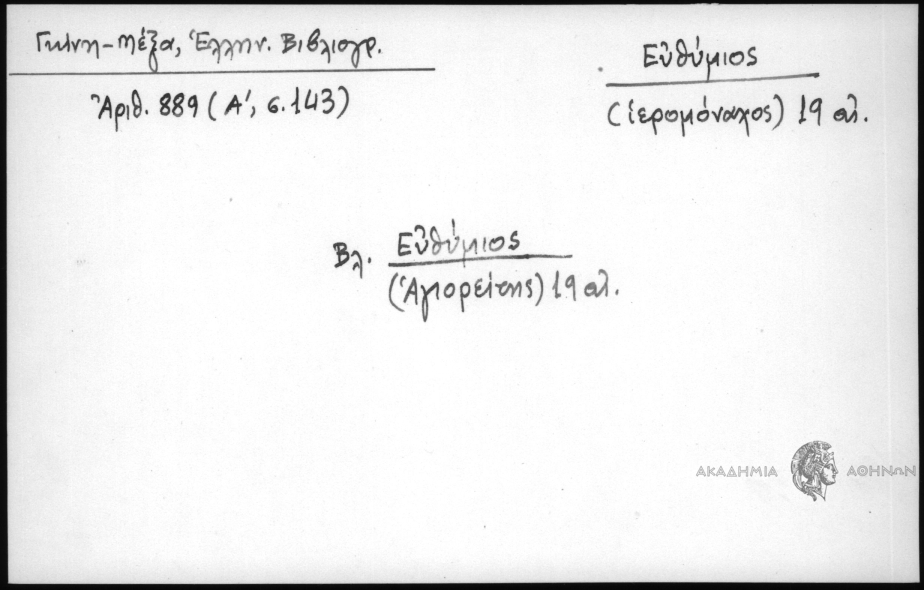 Γκίνη-Μέξα, Ἑλλην. Βιβλιογρ.
Ἀριθ. 889 (Α', σ. 143)
Εὐθύμιος
(ἱερομόναχος) 19 αἰ.
Βλ. Εὐθύμιος
(Ἁγιορείτης) 19 αἰ.
ΑΚΑΔΗΜΙΑ ΑΘΗΝΩΝ